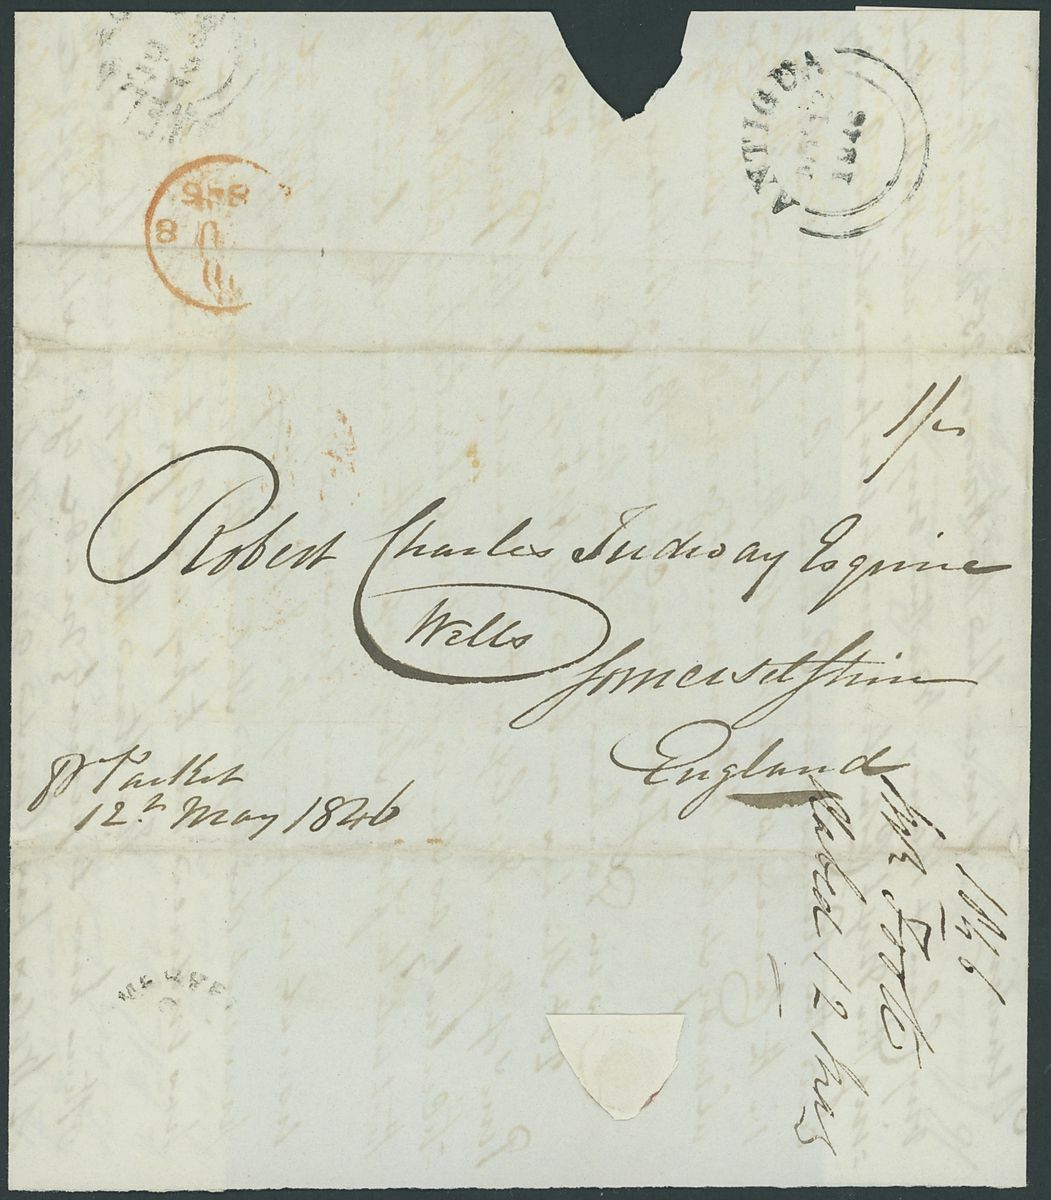 ANTIGUA
1846
8
1/-
Robert Charles Tudway Esquire
Wells
Somersetshire
England
Pr Packet
12th May 1846
1846
12 May